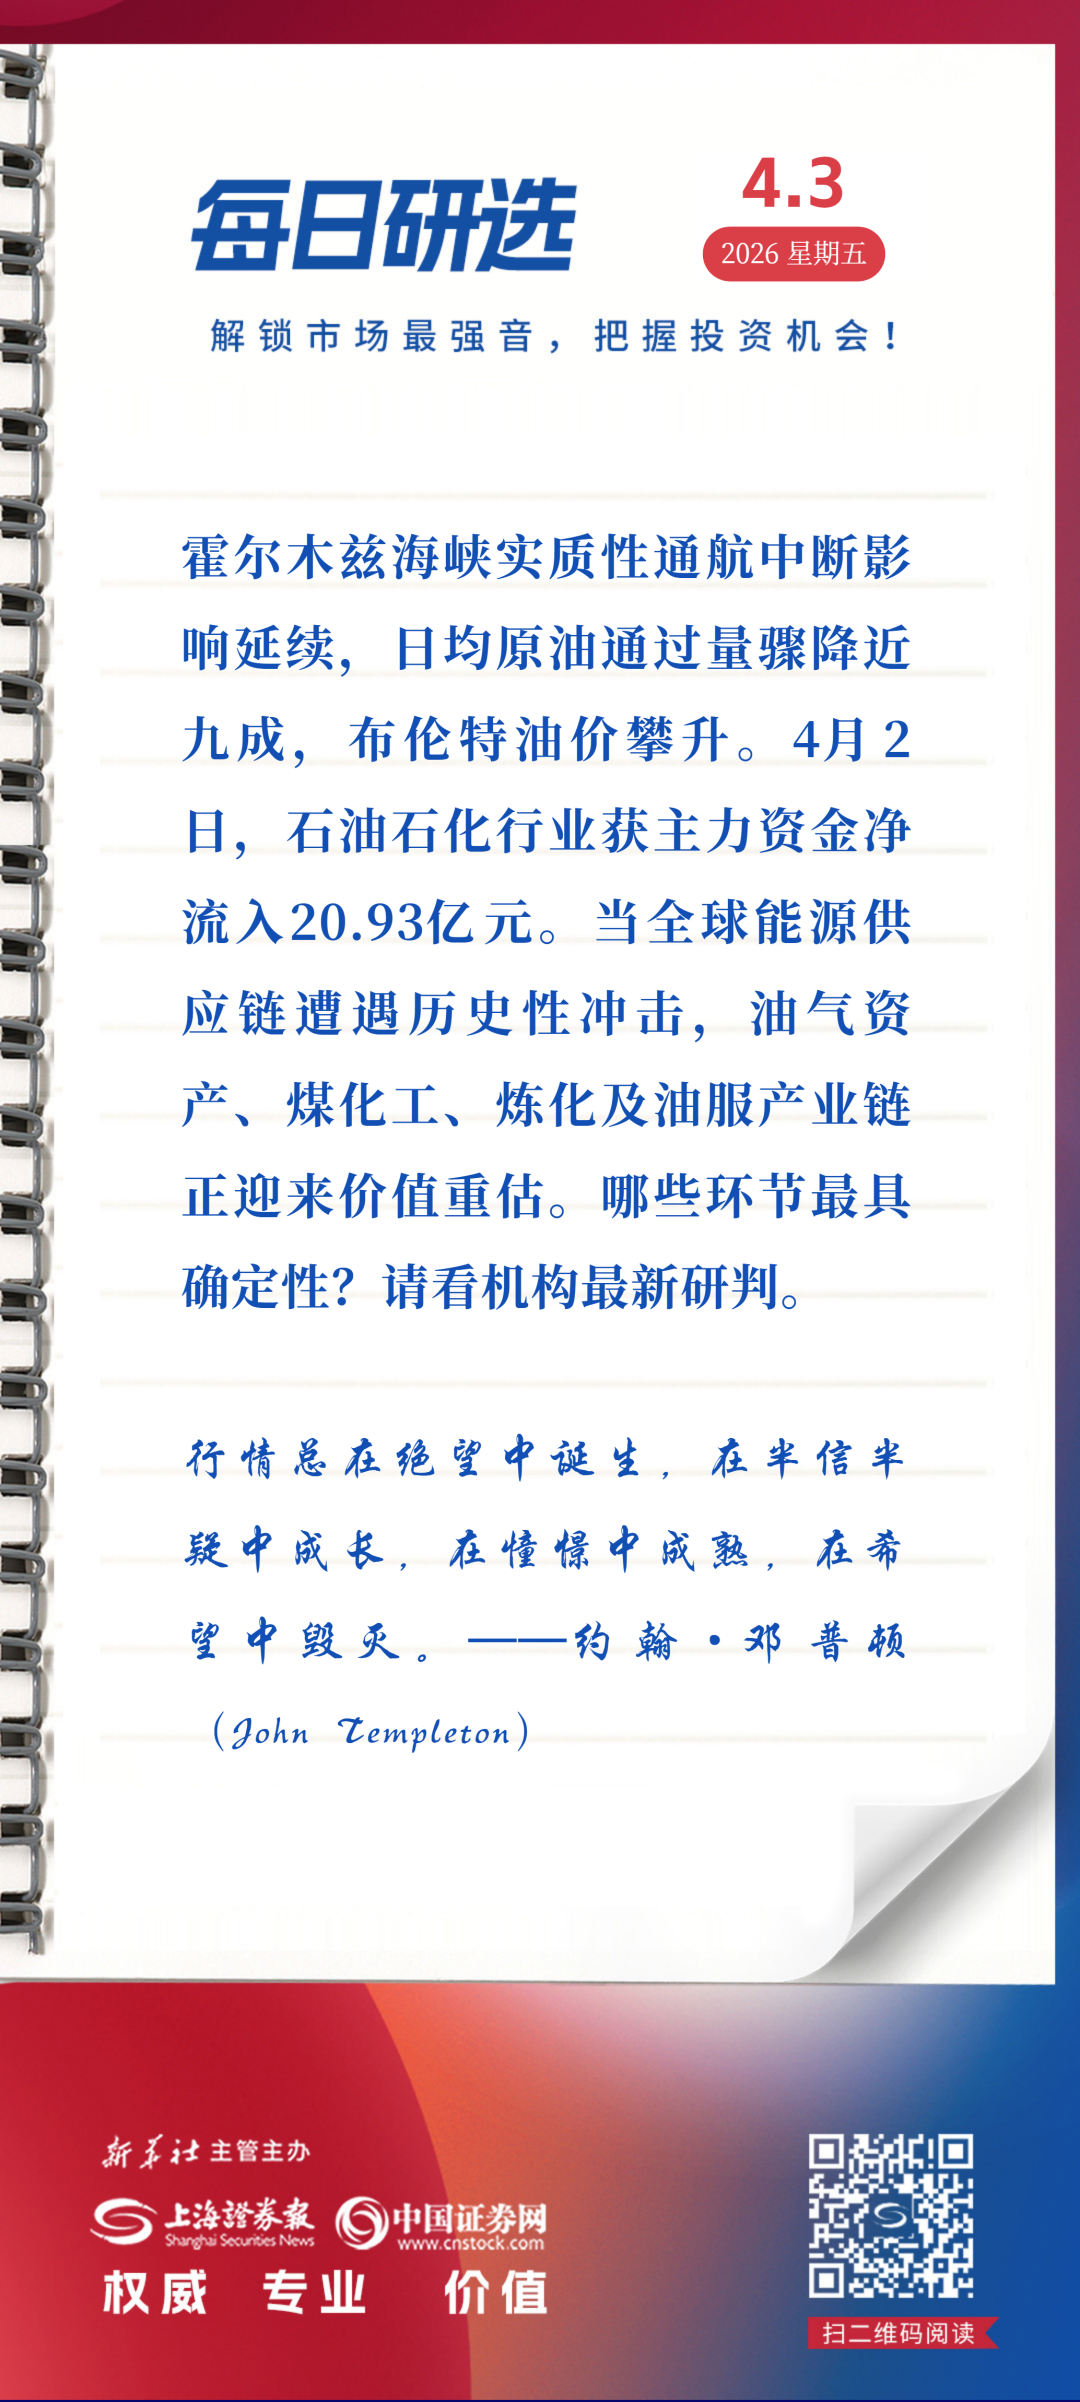 每日研选
4.3
2026 星期五
解锁市场最强音，把握投资机会！
霍尔木兹海峡实质性通航中断影
响延续，日均原油通过量骤降近
九成，布伦特油价攀升。4月2
日，石油石化行业获主力资金净
流入20.93亿元。当全球能源供
应链遭遇历史性冲击，油气资
产、煤化工、炼化及油服产业链
正迎来价值重估。哪些环节最具
确定性？请看机构最新研判。
行情总在绝望中诞生，在半信半
疑中成长，在憧憬中成熟，在希
望中毁灭。——约翰·邓普顿
（John Templeton）
新华社主管主办
上海證券報 中国证券网
Shanghai Securities News www.cnstock.com
权威 专业 价值
扫二维码阅读